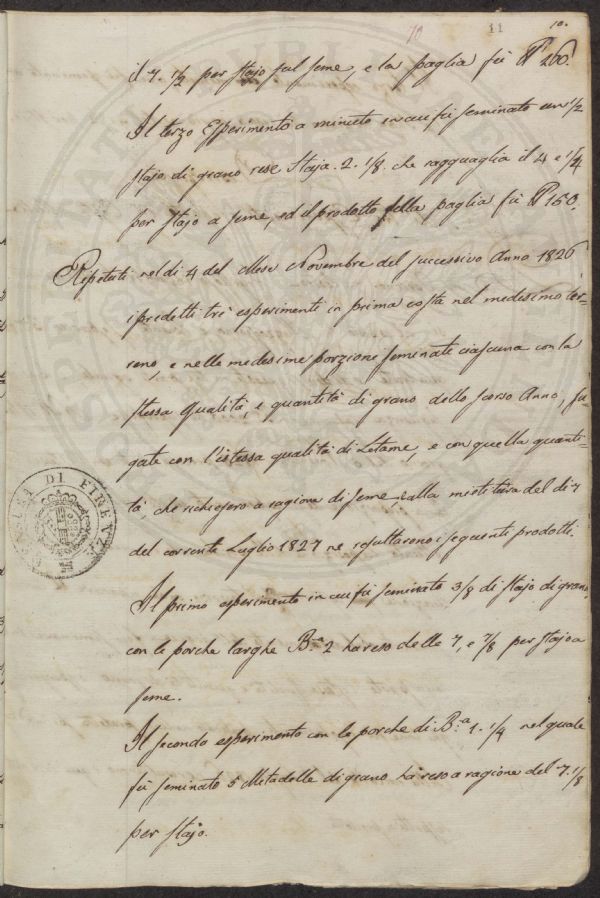 10 11 10.
il 7. 1/2 per stajo sul seme, e la paglia fù ℔ 260.
Il terzo Esperimento a minuto in cui fù seminato un 1/2
stajo di grano rese Staja. 2. 1/8. che ragguaglia il 4 e 1/4
per stajo a seme, ed il prodotto della paglia fù ℔ 150.
Repetuti nel dì 4 del Mese Novembre del successivo Anno 1826
i predetti trè esperimenti in prima costa nel medesimo ter-
reno, e nelle medesime porzione seminate ciascuna con la
stessa Qualità, e quantità di grano dello scorso Anno, fu-
gate con l'istessa qualità di Letame, e con quella quanti-
tà, che richiesero a ragione di seme, alla mietitura del dì 7
del corrente Luglio 1827 ne resultarono i seguenti prodotti.
Il primo esperimento in cui fù seminato 3/8 di stajo di grano,
con le porche larghe B.a 2 ha reso delle 7, e 7/8 per stajo a
seme.
Il secondo esperimento con le porche di B.a 1. 1/4 nel quale
fù seminato 5 Metadelle di grano ha reso a ragione del 7. 1/8
per stajo.
DI FIRENZE